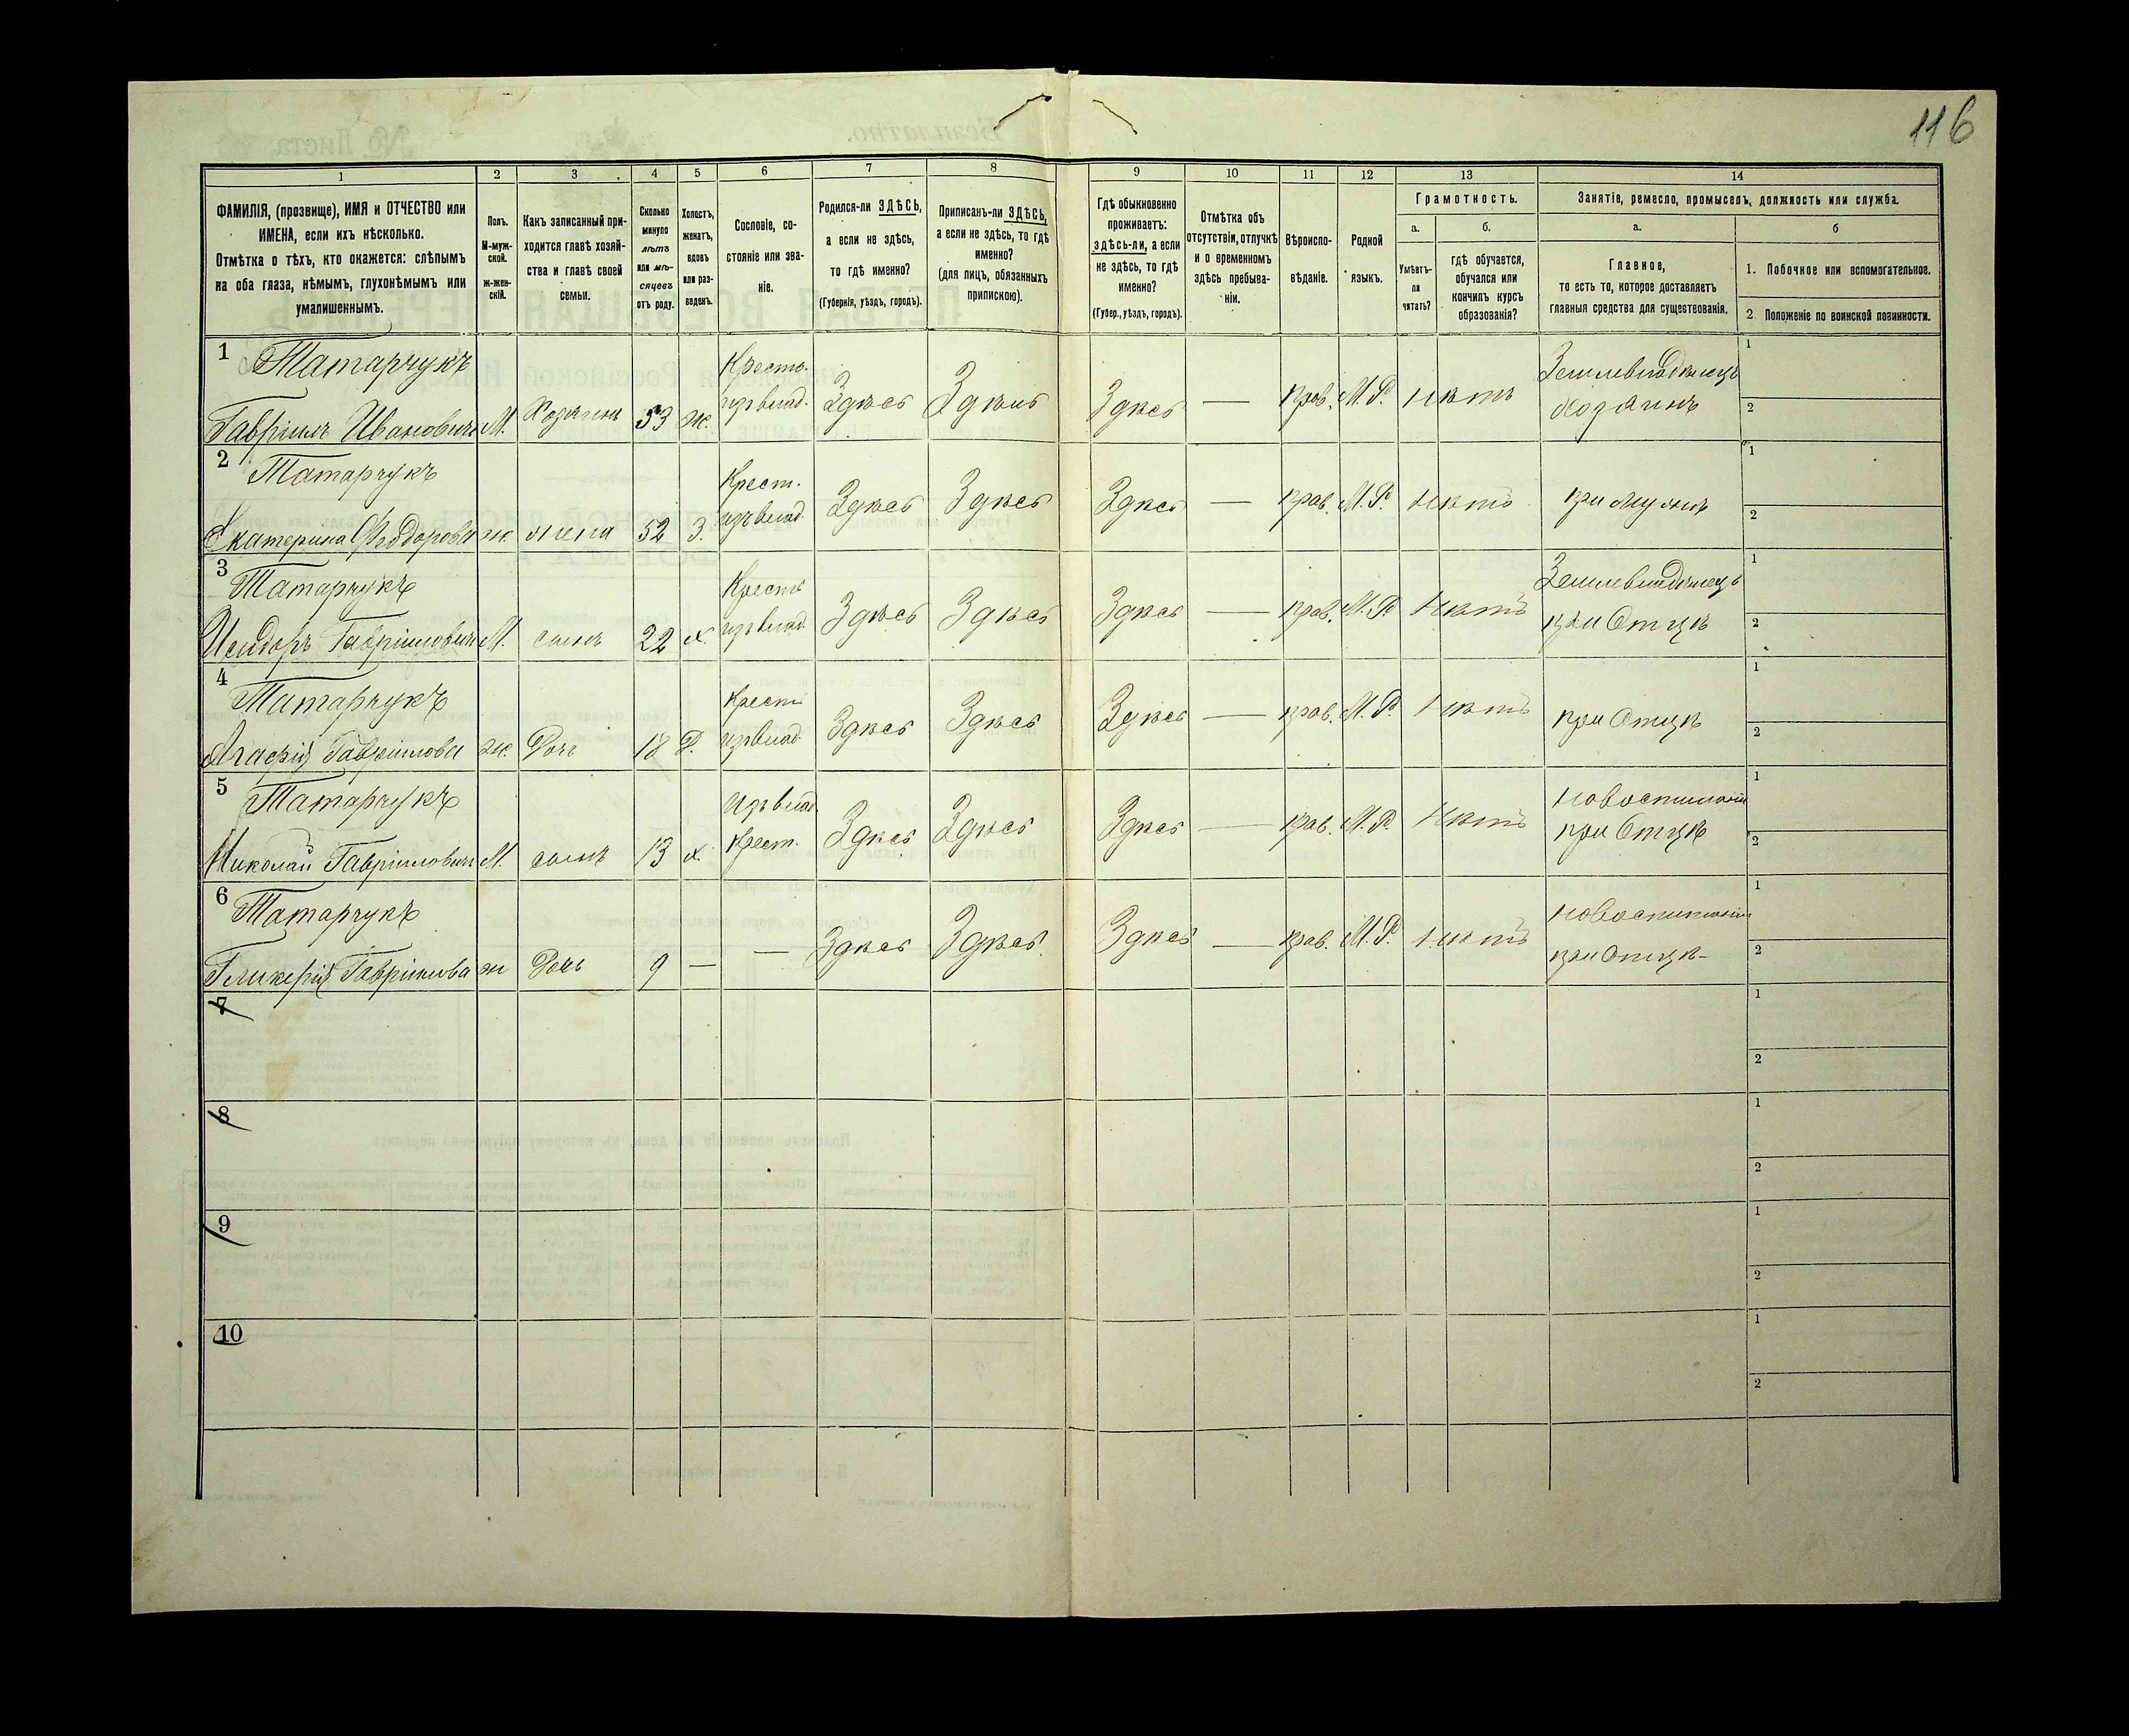 116
1 2 3 4 5 6 7 8 9 10 11 12 13 14
ФАМИЛІЯ, (прозвище), ИМЯ и ОТЧЕСТВО или
ИМЕНА, если ихъ нѣсколько.
Отмѣтка о тѣхъ, кто окажется: слѣпымъ
на оба глаза, нѣмымъ, глухонѣмымъ или
умалишеннымъ.
Полъ.
М-муж-
ской.
ж-жен-
скій.
Какъ записанный при-
ходится главѣ хозяй-
ства и главѣ своей
семьи.
Сколько
минуло
лѣтъ
или мѣ-
сяцевъ
отъ роду.
Холостъ,
женатъ,
вдовъ
или раз-
веденъ.
Сословіе, со-
стояніе или зва-
ніе.
Родился-ли ЗДѢСЬ,
а если не здѣсь,
то гдѣ именно?
(Губернія, уѣздъ, городъ).
Приписанъ-ли ЗДѢСЬ,
а если не здѣсь, то гдѣ
именно?
(для лицъ, обязанныхъ
припискою).
Гдѣ обыкновенно
проживаетъ:
здѣсь-ли, а если
не здѣсь, то гдѣ
именно?
(Губер., уѣздъ, городъ).
Отмѣтка объ
отсутствіи, отлучкѣ
и о временномъ
здѣсь пребыва-
ніи.
Вѣроиспо-
вѣданіе.
Родной
языкъ.
Грамотность.
а.
Умѣетъ-
ли
читать?
б.
гдѣ обучается,
обучался или
кончилъ курсъ
образованія?
Занятіе, ремесло, промыселъ, должность или служба.
а.
Главное,
то есть то, которое доставляетъ
главныя средства для существованія.
б
1. Побочное или вспомогательное.
2. Положеніе по воинской повинности.
1 Татарчукъ Кресть. Землевладѣлецъ 1
Гавріилъ Ивановичъ М. Хозяинъ 53 ж. изъ влад. Здѣсь Здѣсь Здѣсь — прав. М.Р. нѣтъ хозяинъ 2
2 Татарчукъ Крест. 1
Екатерина Федорова ж. жена 52 З. изъ влад. Здѣсь Здѣсь Здѣсь — прав. М.Р. нѣтъ при мужѣ 2
3 Татарчукъ Кресть Землевладѣлецъ 1
Исидоръ Гавріиловичъ М. сынъ 22 х. изъ влад. Здѣсь Здѣсь Здѣсь — прав. М.Р. нѣтъ при Отцѣ 2
4 Татарчукъ Крестъ 1
Агафія Гавріилова ж. Дочь 18 Д. изъ влад. Здѣсь Здѣсь Здѣсь — прав. М.Р. нѣтъ при Отцѣ 2
5 Татарчукъ Изъ влад. 1
Николай Гавріиловичъ М. сынъ 13 х. Крест. Здѣсь Здѣсь Здѣсь — прав. М.Р. нѣтъ при Отцѣ 2
6 Татарчукъ 1
Гликерія Гавріилова ж Дочь 9 — — Здѣсь Здѣсь Здѣсь — прав. М.Р. нѣтъ при Отцѣ 2
7 1
2
8 1
2
9 1
2
10 1
2